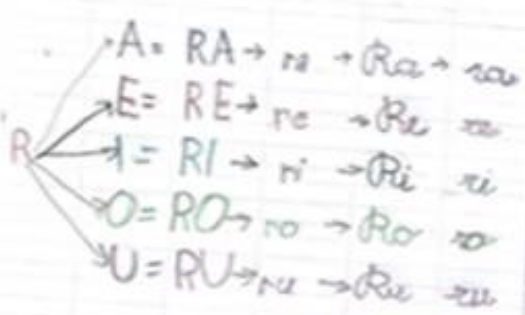 A = RA → ra → Ra → ra
E = RE → re → Re re
R I = RI → ri → Ri ri
O = RO → ro → Ro ro
U = RU → ru → Ru ru